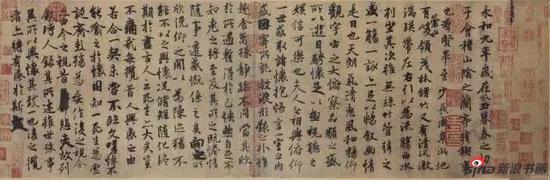 永和九年歲在癸丑暮春之初會
于會稽山陰之蘭亭脩禊事
也群賢畢至少長咸集此地
有崇山峻領茂林脩竹又有清流激
湍暎帶左右引以為流觴曲水
列坐其次雖無絲竹管弦之
盛一觴一詠亦足以暢叙幽情
是日也天朗氣清惠風和暢仰
觀宇宙之大俯察品類之盛
所以遊目騁懷足以極視聽之
娛信可樂也夫人之相與俯仰
一世或取諸懷抱悟言一室之內
或因寄所託放浪形骸之外雖
趣舍萬殊靜躁不同當其欣
於所遇暫得於己怏然自足不
知老之將至及其所之既惓情
隨事遷感慨係之矣向之所
欣俛仰之閒以為陳迹猶不
能不以之興懷況脩短隨化終
期於盡古人云死生亦大矣豈
不痛哉每攬昔人興感之由
若合一契未嘗不臨文嗟悼不
能喻之於懷固知一死生為虛
誕齊彭殤為妄作後之視今
亦由今之視昔悲夫故列
叙時人錄其所述雖世殊事
異所以興懷其致一也後之攬
者亦將有感於斯文
sina 新浪书画